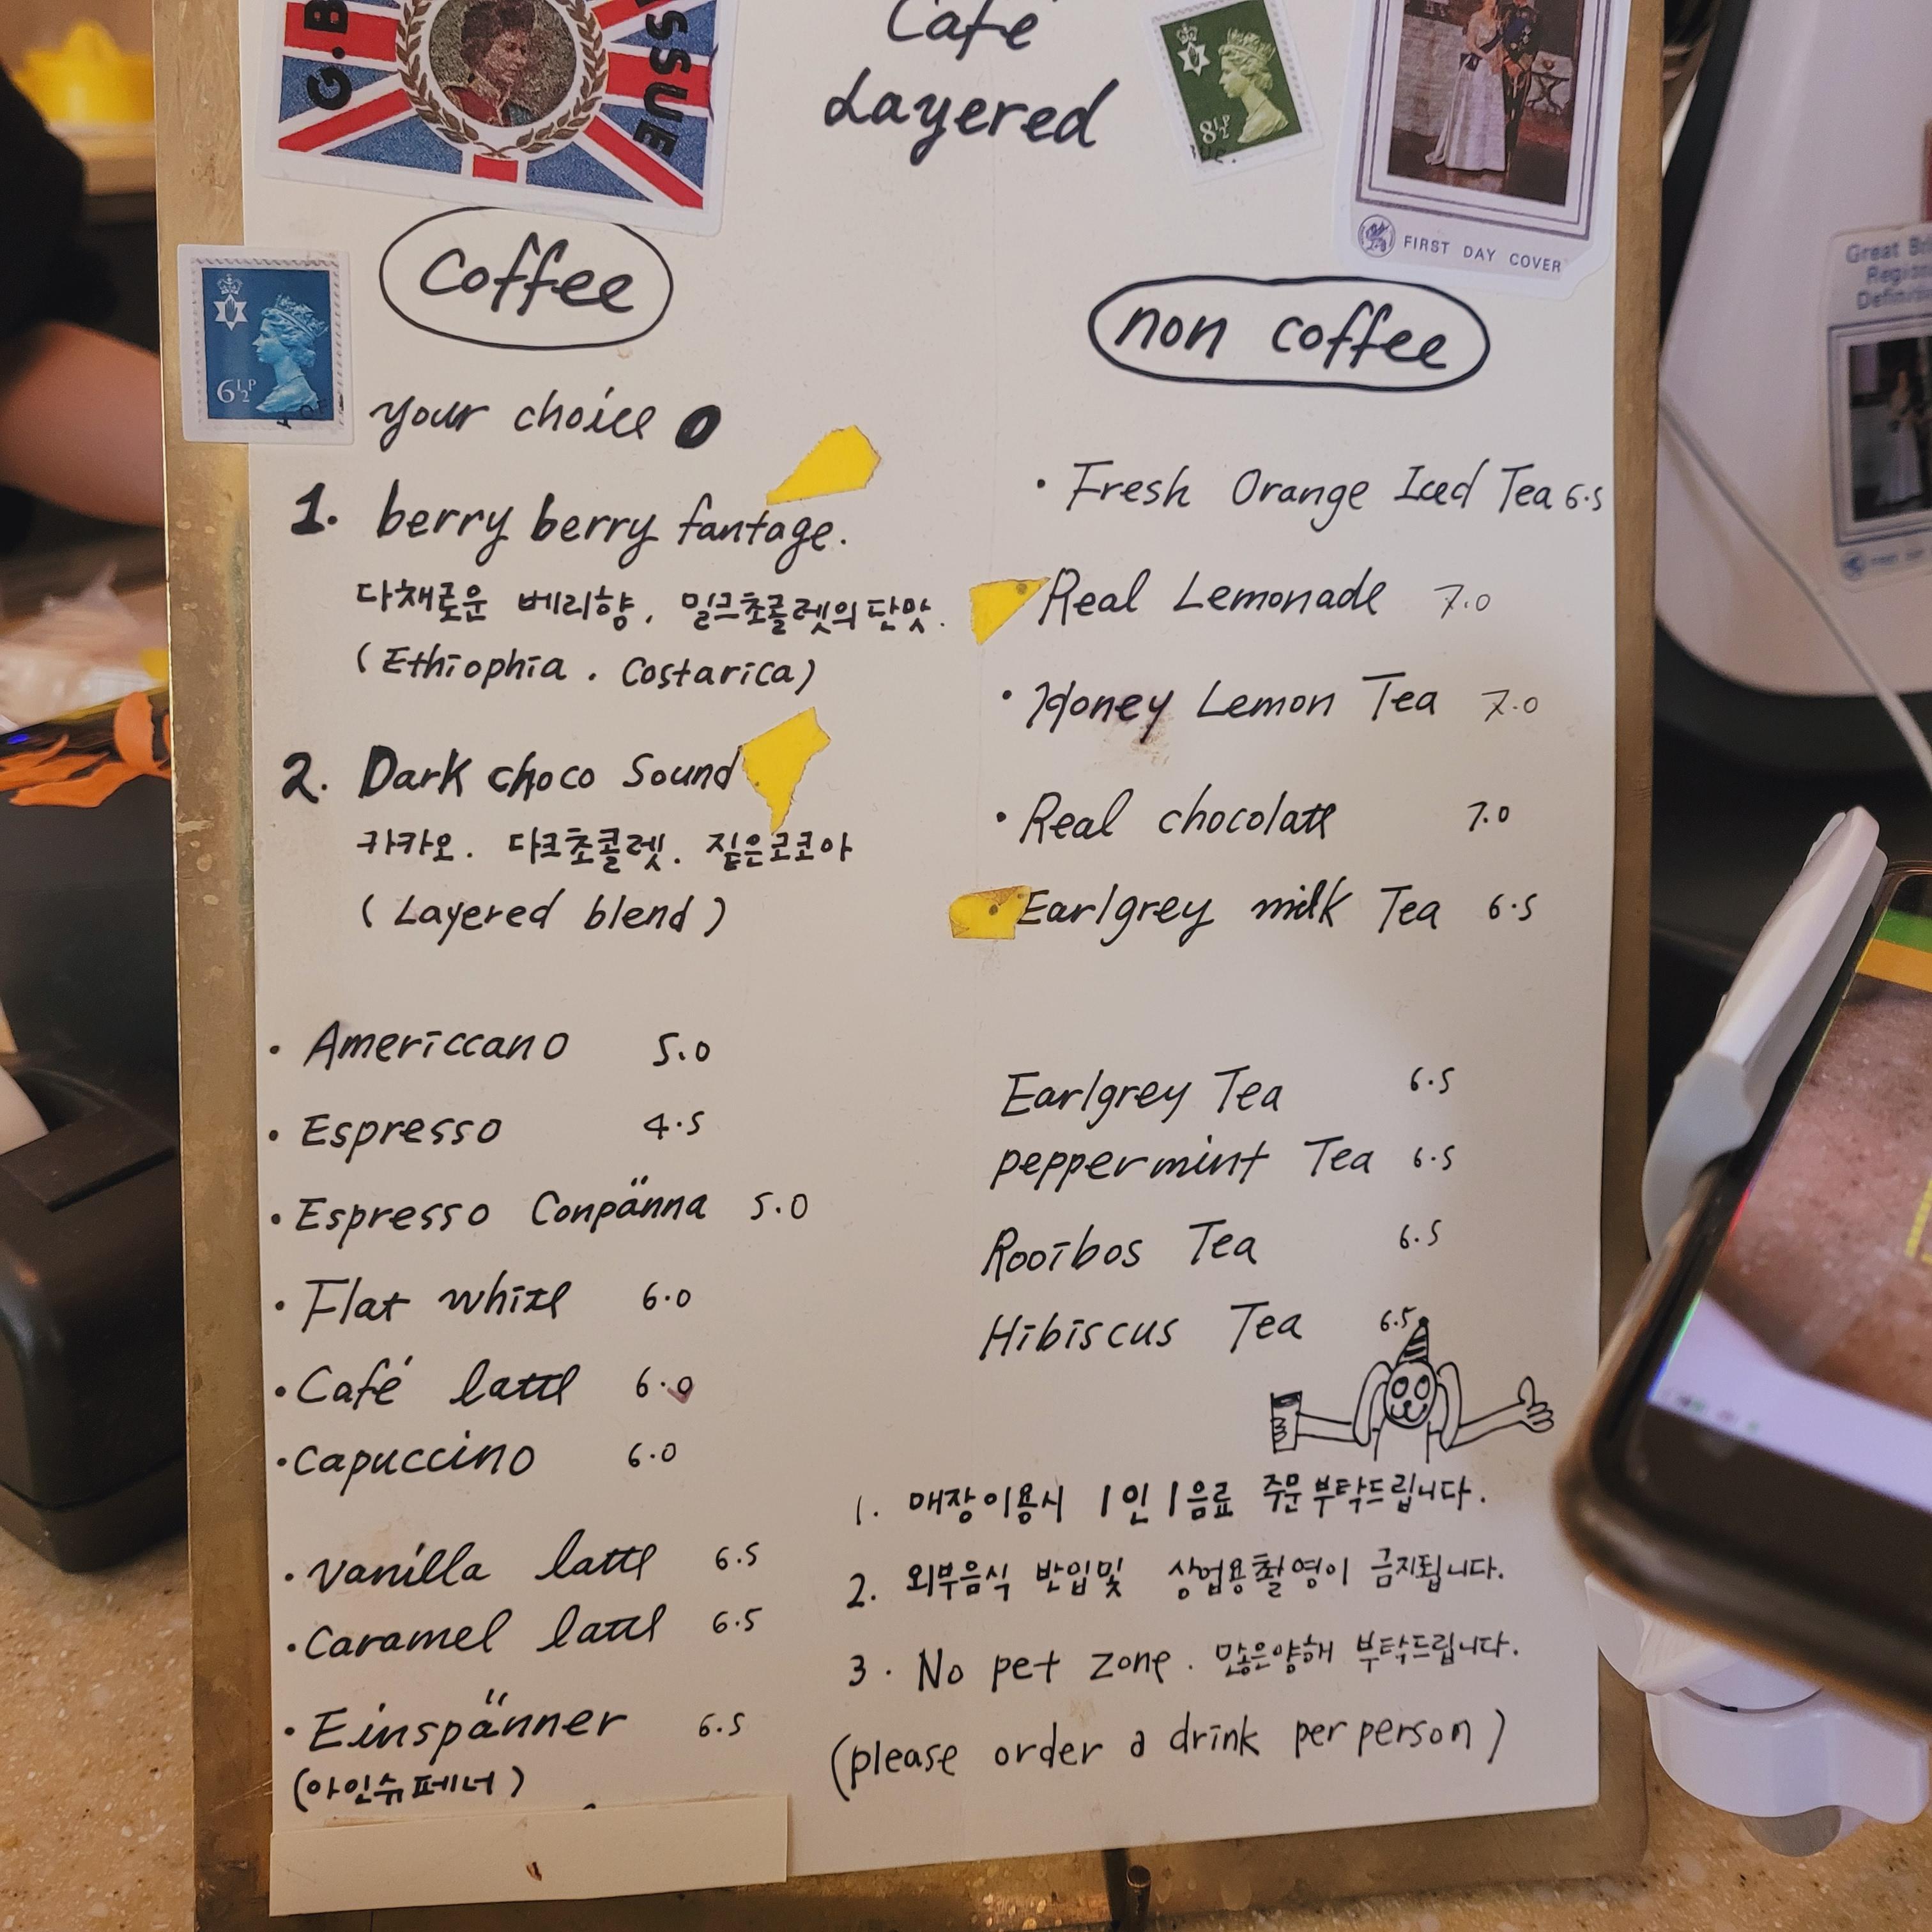 G.B
ISSUE
Café
Layered
8½P
FIRST DAY COVER
6½P
Coffee
your choice
1. berry berry fantage.
다채로운 베리향, 밀크초콜렛의 단맛.
(Ethiophia . Costarica)
2. Dark choco Sound
카카오. 다크초콜렛. 짙은코코아
(Layered blend)
· Americcano 5.0
· Espresso 4.5
· Espresso Conpänna 5.0
· Flat white 6.0
· Café latte 6.0
· Capuccino 6.0
· Vanilla latte 6.5
· Caramel latte 6.5
· Einspänner 6.5
(아인슈페너)
non coffee
· Fresh Orange Iced Tea 6.5
Real Lemonade 7.0
· Honey Lemon Tea 7.0
· Real chocolate 7.0
Earlgrey milk Tea 6.5
Earlgrey Tea 6.5
peppermint Tea 6.5
Rooibos Tea 6.5
Hibiscus Tea 6.5
1. 매장이용시 1인 1음료 주문 부탁드립니다.
2. 외부음식 반입및 상업용촬영이 금지됩니다.
3. No pet zone. 많은양해 부탁드립니다.
(please order a drink per person)
Great